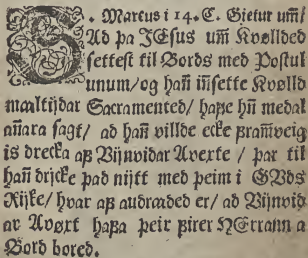 S. Marcus i 14. C. Gietur um̃
Ad þa JEsus um̃ Kvølld
settest til Bords med Postul
unum/ og hañ iñsette Kvølld
mæltijdar Sacramented/ haffe hñ medal
añara sagt/ ad hañ villde ecke framveig
is drecka aff Vijnvidar Avexte/ þar til
hañ dricke þad nijtt med þeim i GVds
Rijke/ hvar aff audrarded er/ ad Vijnvid
ar Avøxt haffa þeir firer HErrann a
Bord bored.